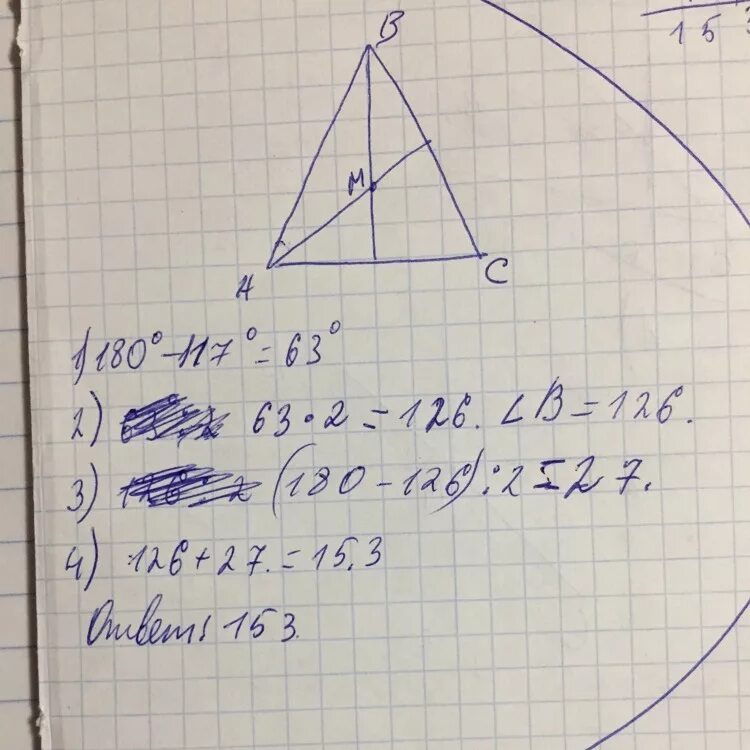 153
B
M
A
C
1) 180° - 117° = 63°
2) 63 · 2 = 126. ∠B = 126.
3) (180 - 126) : 2 = 27.
4) 126 + 27. = 153
Ответ: 153